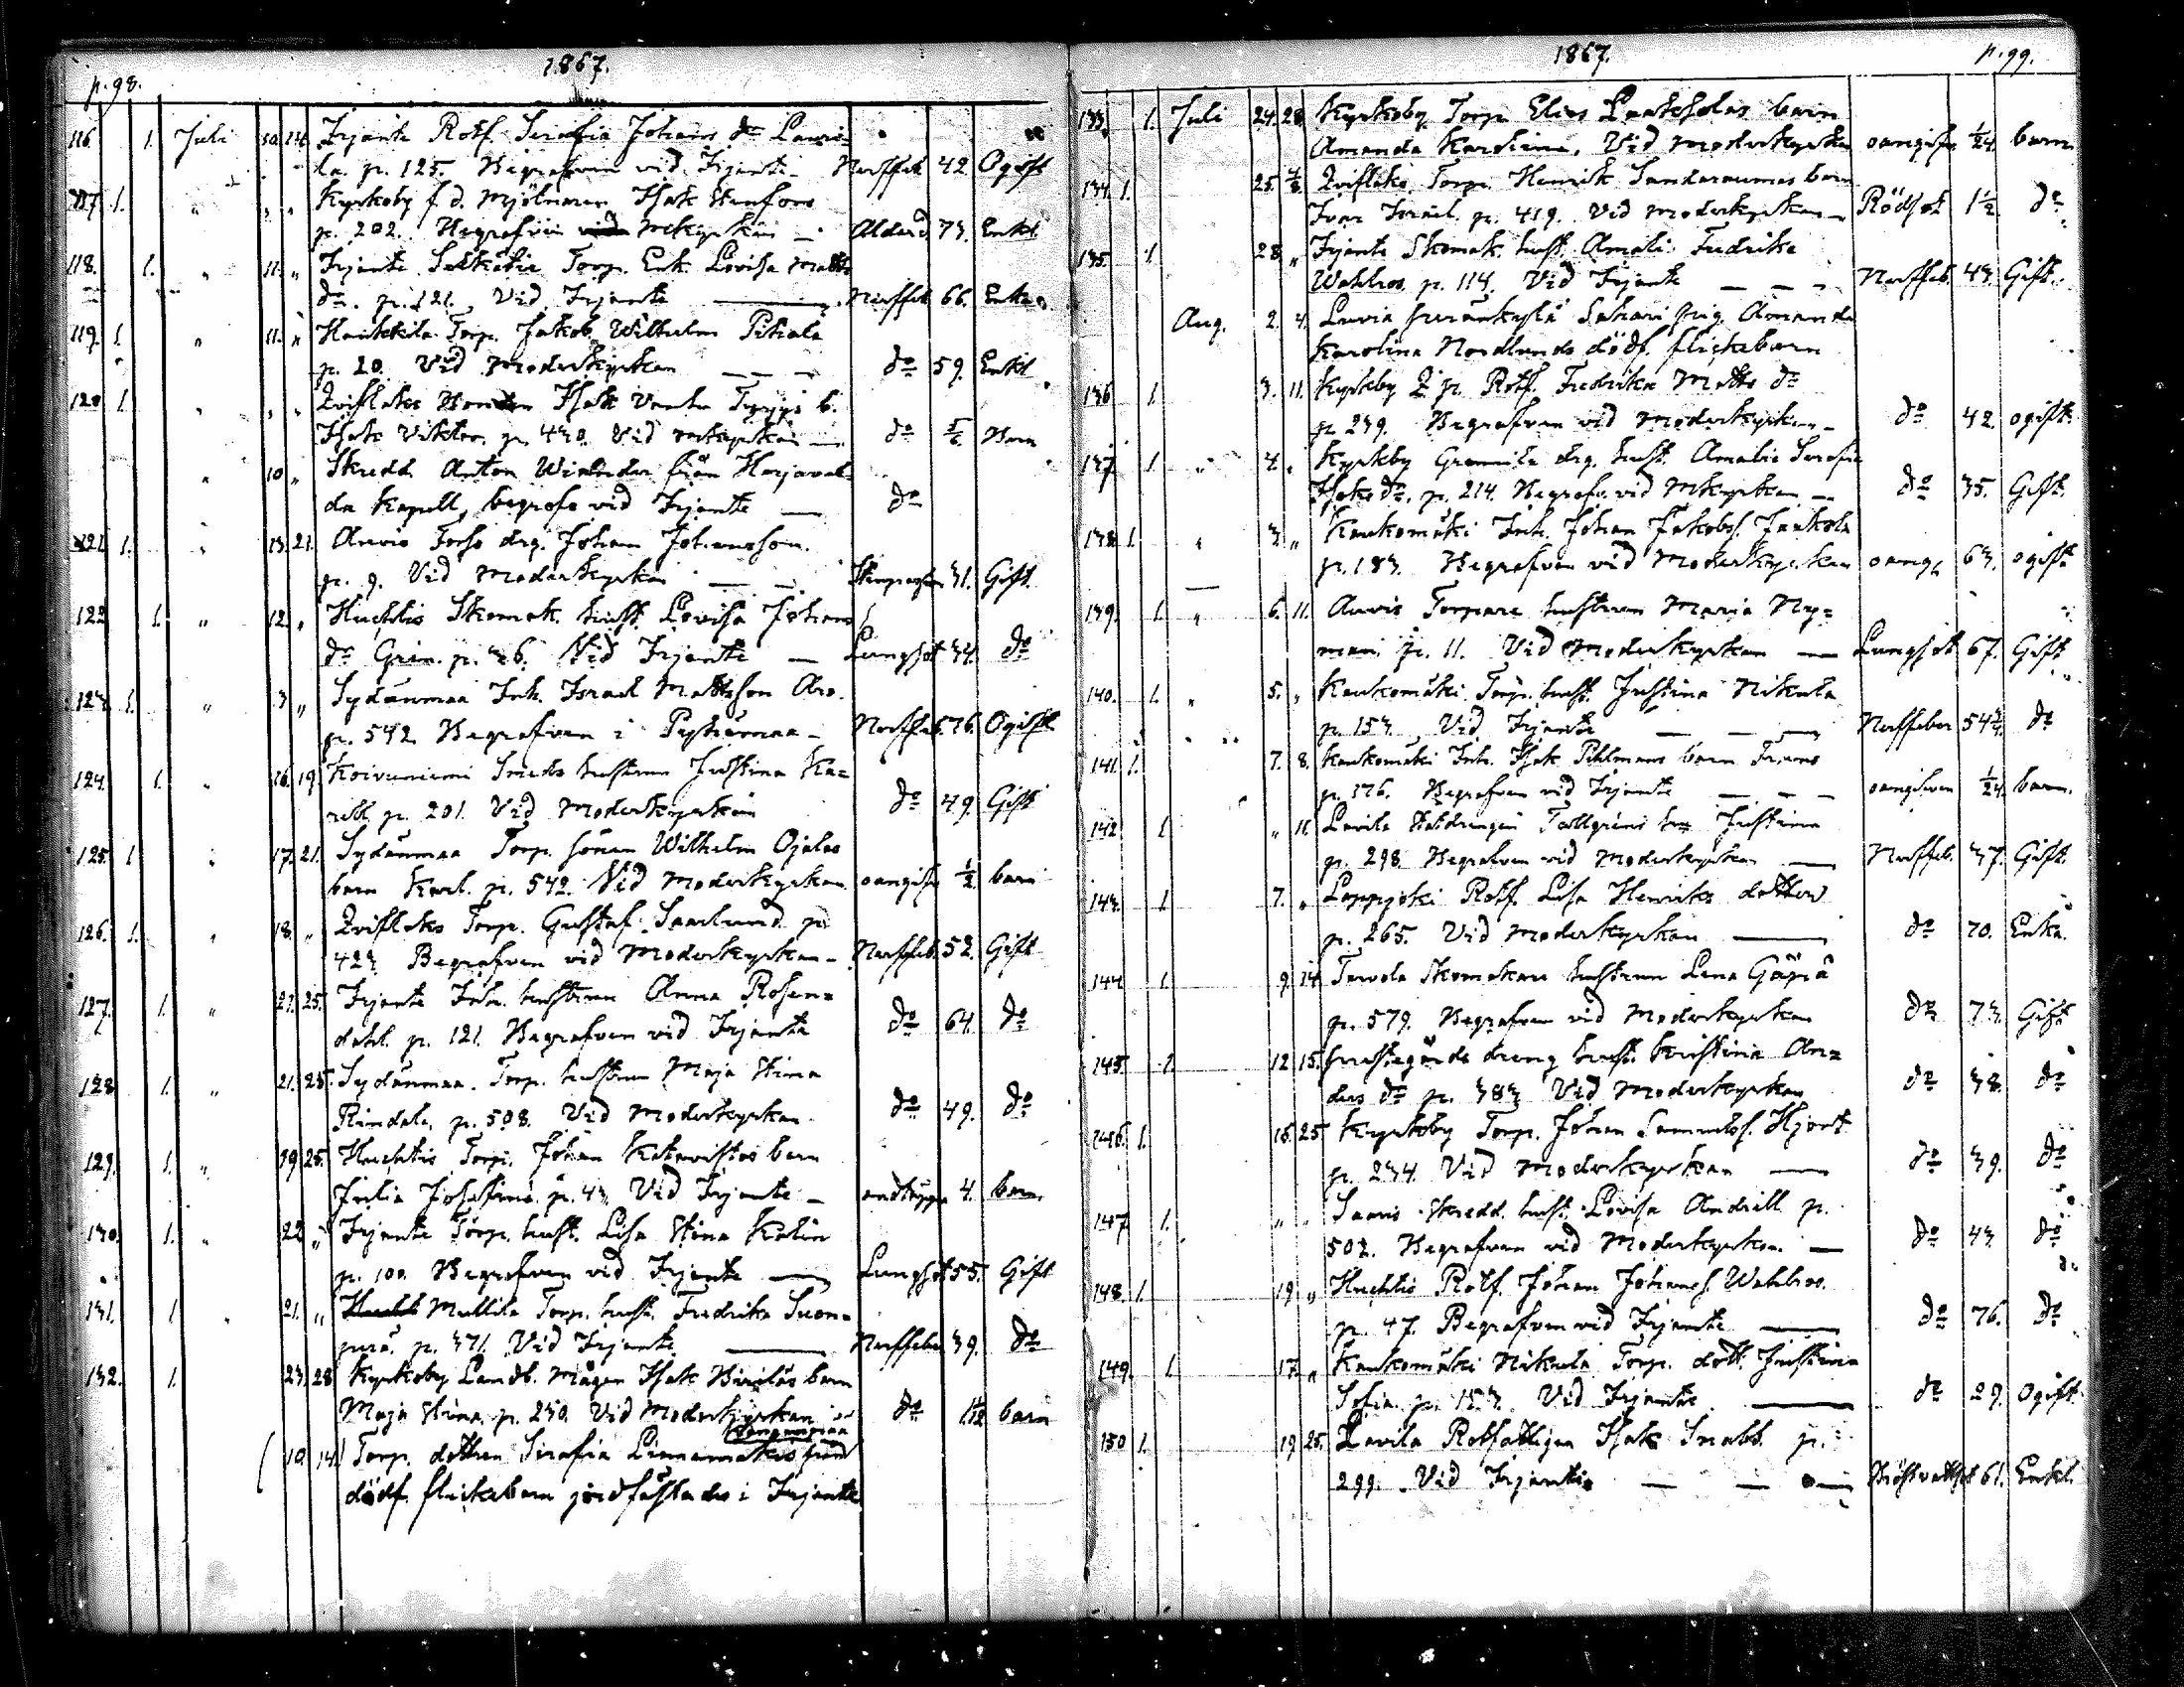 p. 98. 1867.
116. 1. Juli 10. 14. Irjante Rotf. Serafia Johans dr Lauri-
la. p. 125. Begrafven vid Irjante - Nerffeb 42 Ogift
117. 1. " " " Kyrkoby f. d. Mjölnaren Isak Stenfors
p. 202. Begrafven Mkyrkan - Ålderd. 73. Enkl.
118. 1. " 11. " Irjante Torp. Enk. Lovisa Matts
dr. p. 121. Vid Irjante Nerffeb 66. Enka
119. 1. " 11. " Torp. Jakob Wilhelm
p. 20. Vid Moderkyrkan do 59. Enkl
120 1. " " " Isak b.
Isak Viktor. p. 430. Vid Mkyrkan do Barn
" 10 " Skredd. Anton från Harjaval-
da Kapell, begrafv. vid Irjante do
121. 1. " 13. 21. Anvis drg. Johan Johansson.
p. 9. Vid Moderkyrkan 31. Gift
122 1. " 12. " Huchtis Skomak. hust. Lovisa Johans
dr Grén. p. 26. Vid Irjante Lungsot 34. do
123 1. " 3 " Sydänmaa Inh. Israel Mattsson
p. 542 Begrafven i - Nerffeb. 76. Ogift
124. 1. " 16. 19 Koivuniemi hustrun Justina Ka-
rell p. 201. Vid Moderkyrkan do 49. Gift
125. 1 " 17. 21. Sydänmaa Torp. sonen Wilhelm Ojalas
barn Karl. p. 542. Vid Moderkyrkan oangifv. 1/2 barn
126. 1. " 18. " Torp. Gustaf Saarlund p
423. Begrafven vid Moderkyrkan - Nerffeb. 52. Gift
127. 1. " 21. 25. Irjante Inh. hustrun Anna Rosen-
dahl. p. 121. Begrafven vid Irjante do 64. do
128 1. " 21. 25. Sydänmaa. Torp. hustrun Maja Stina
Rindala, p. 508. Vid Moderkyrkan do 49. do
129. 1. " 19 25. Huchtis Torp. Johan barn
Julia Josefina p. 43 Vid Irjante - andtäppa 4. barn
130. 1. " 22 " Irjante Torp. hust. Lisa Stina Kalin
p. 100. Begrafven vid Irjante Lungsot 55. Gift
131. 1 " 21. " Mullila Torp. hust. Fredrika Suon-
perä. p. 371. Vid Irjante Nerffeber 39. do
132. 1. 23. 28 Kyrkoby Landb. Mågen Isak barn
Maja Stina p. 230. Vid Moderkyrkan do 1 1/12 barn
10. 14. Torp. dottren Serafia Linnamäkis
dödf. flickebarn jordfästades i Irjante
1867. p. 99.
133. 1. Juli 24. 28. Kyrkoby Torp. Elias barn
Amanda Karolina. Vid Moderkyrkan oangifv. 1/24. barn
134. 1. 25. 4/8 Torp. Henrik barn
Ivar Israel. p. 419. Vid Moderkyrkan - Rödsot 1 1/2 do
135. 1 28 " Irjante Skomak. hust. Amalia Fredrika
Wahlroos p. 114. Vid Irjante Nerffeb. 43. Gift
Aug. 2. 4. Lavia pig. Amanda
Karolina Nordlunds dödf. flickebarn
136 1. 3. 11. Kyrkby p. Rotf. Fredrika Matts dr
p. 239. Begrafven vid Moderkyrkan - do 42. ogift
137 1 " 4. " Kyrkby drg. hust. Amalia Serafia
Isaks dr. p. 214. Begrafv. vid Mkyrkan do 35. Gift.
138 1. " 3. " Kaukomäki Inh. Johan Jakobs. Jaakola
p. 183. Begrafven vid Moderkyrkan oang. 63. ogift
139. 1. " 6. 11. Anvis Torpare hustrun Maria Ny-
man p. 11. Vid Moderkyrkan Lungsot 67. Gift
140. 1. " 5. " Kaukomäki Torp. hust. Justina Nikula
p. 153. Vid Irjante Nerffeber do
141. 1. 7. 8. Kaukomäki Inh. Isak Pihlmans barn Frans
p. 176. Begrafven vid Irjante oangifven 1/24. barn.
142 1 " 11. Lavila Statdrengen Tallgréns hu Justina
p. 298 Begrafven vid Moderkyrkan Nerffeb. 37. Gift.
143. 1. 7. " Rotf. Lisa Henriks dotter
p. 265. Vid Moderkyrkan do 70. Enka.
144 1 9 14. Tervola Skomakare hustrun Lena
p. 579. Begrafven vid Moderkyrkan do 73. Gift
145. 1 12 15. dreng hust. Kristina An-
ders dr p. 383 Vid Moderkyrkan do 38. do
146. 1. 16. 25 Kyrkoby Torp. Johan Samuelss. Hjort
p. 234. Vid Moderkyrkan do 39. do
147 1. " " Saaris Skredd. hust. Lovisa Andrill p.
502. Begrafven vid Moderkyrkan do 43. do
148. 1. 19 " Huchtis Rotf. Johan Johanss. Wahlroos.
p. 47. Begrafven vid Irjante do 76. do
149. 1 17. " Kaukomäki Nikula Torp. dott. Justina
Sofia. p. 153. Vid Irjante do 29. Ogift
150 1. 19 25. Lavila Rotfattigen Isak Snabb. p.
299. Vid Irjante Bröstvattsot 61. Enkl.